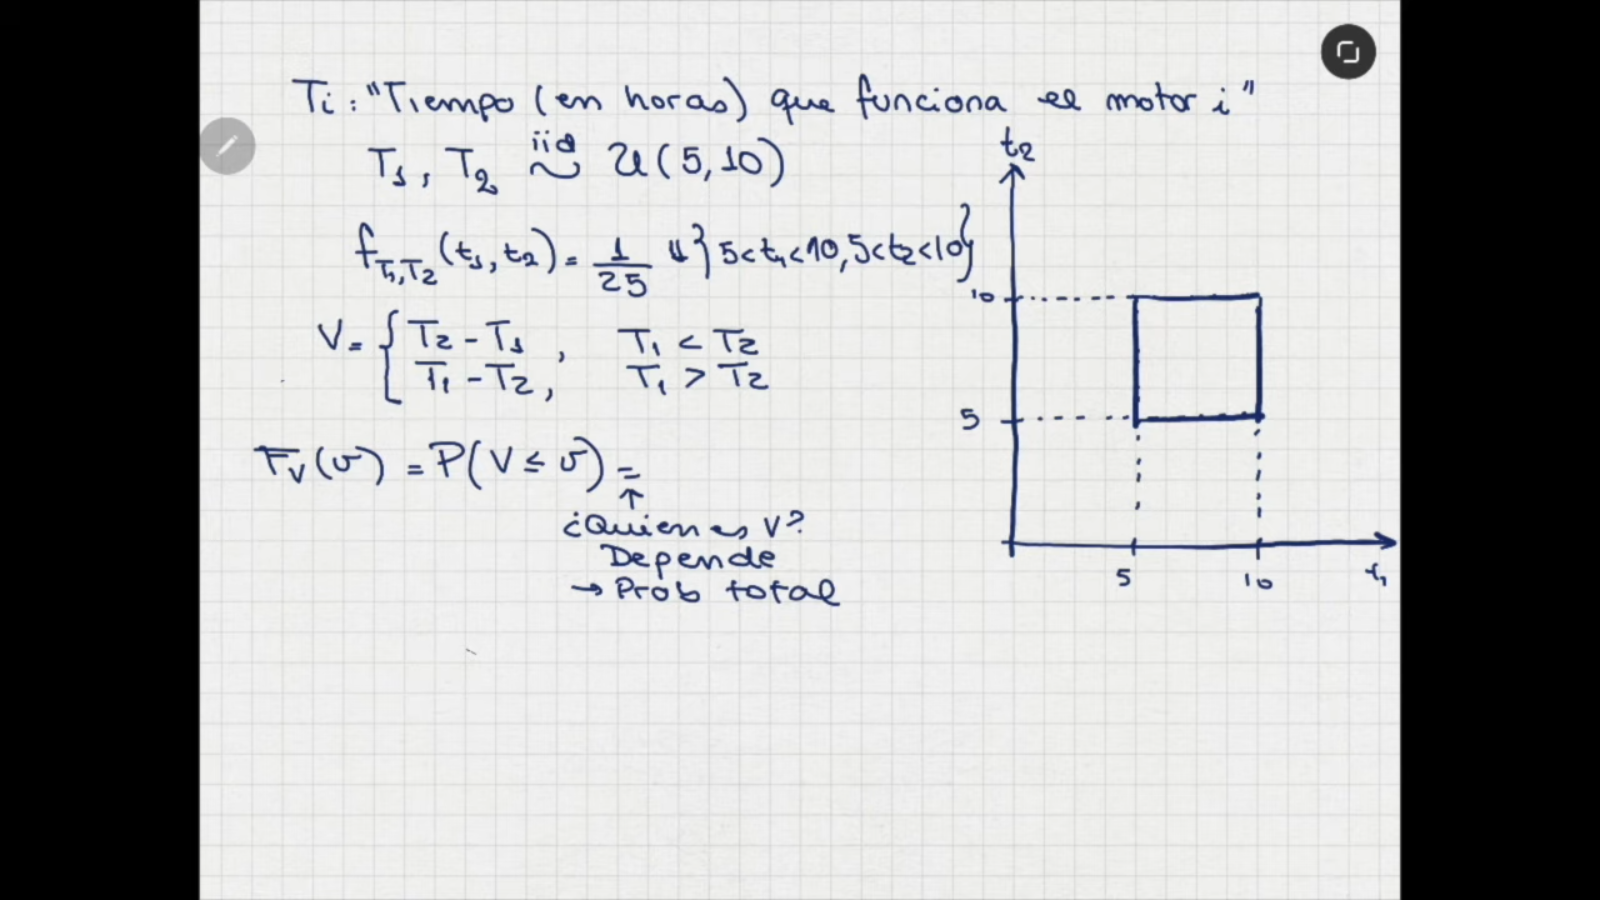 Ti: "Tiempo (en horas) que funciona el motor i"
T1, T2 iid ~ U(5,10)
fT1,T2(t1,t2) = 1/25 1{5<t1<10, 5<t2<10}
V = { T2 - T1, T1 < T2
T1 - T2, T1 > T2
FV(v) = P(V ≤ v) =
↑
¿Quien es V?
Depende
→ Prob total
t2
10
5
5 10 t1